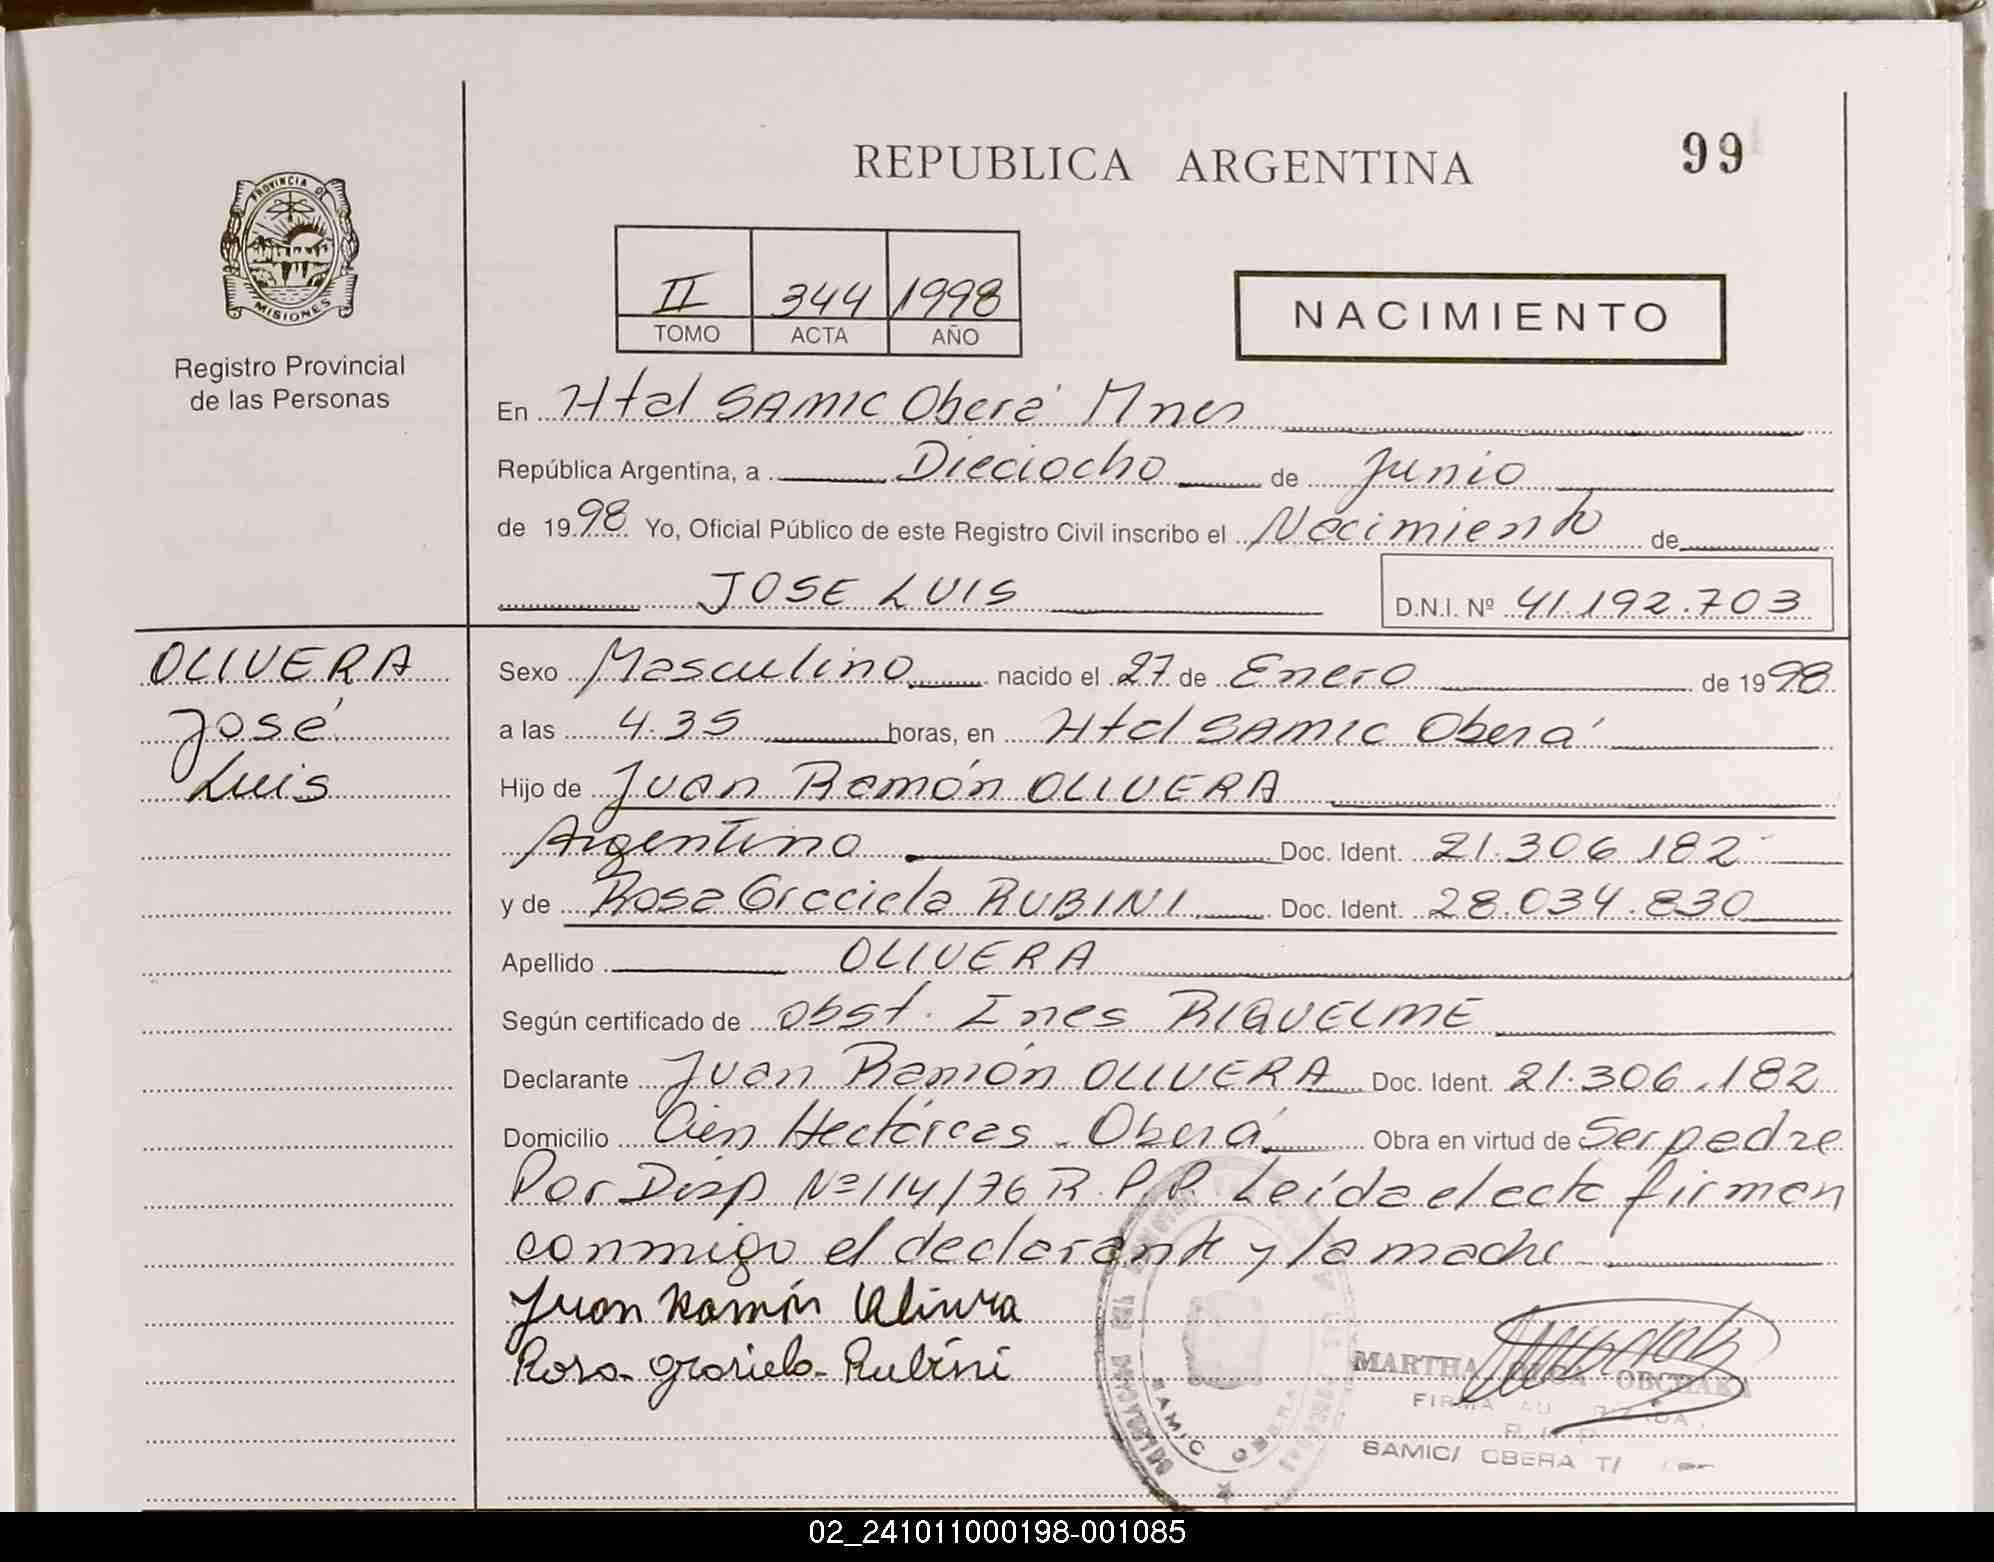 REPUBLICA ARGENTINA
99
PROVINCIA DE
MISIONES
Registro Provincial
de las Personas
II 344 1998
TOMO ACTA AÑO
NACIMIENTO
En Htal SAMIC Oberá Mnes
República Argentina, a Dieciocho de Junio
de 1998 Yo, Oficial Público de este Registro Civil inscribo el Nacimiento de
JOSE LUIS
D.N.I. Nº 41.192.703
OLIVERA
José
Luis
Sexo Masculino nacido el 27 de Enero de 1998
a las 4.35 horas, en Htal SAMIC Oberá
Hijo de Juan Ramón OLIVERA
Argentino Doc. Ident. 21.306.182
y de Rosa Graciela RUBINI Doc. Ident. 28.034.830
Apellido OLIVERA
Según certificado de obst. Ines RIQUELME
Declarante Juan Ramón OLIVERA Doc. Ident. 21.306.182
Domicilio Cien Hectáreas - Oberá Obra en virtud de Ser padre
Por Disp Nº 114/76 R.P.P. Leída el acta firman
conmigo el declarante y la madre
Juan Ramón Olivera
Rosa Grasiela Rubini
MARTHA OBCHAKA
FIRMA
SAMIC/ OBERA
SAMIC OBERA
02_241011000198-001085